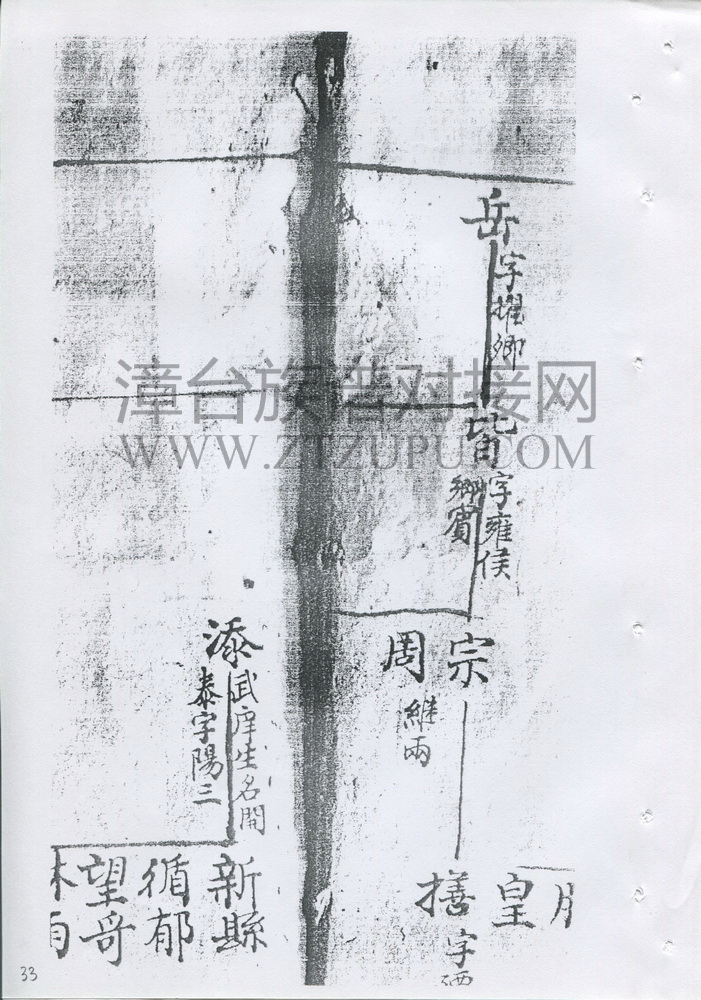 岳
字擢卿
皆
字雍侯
鄉賓
宗
周
維兩
皇
字
添
武庠生名開
泰字陽三
新縣
循郁
望哥
漳台族谱对接网
WWW.ZTZUPU.COM
33